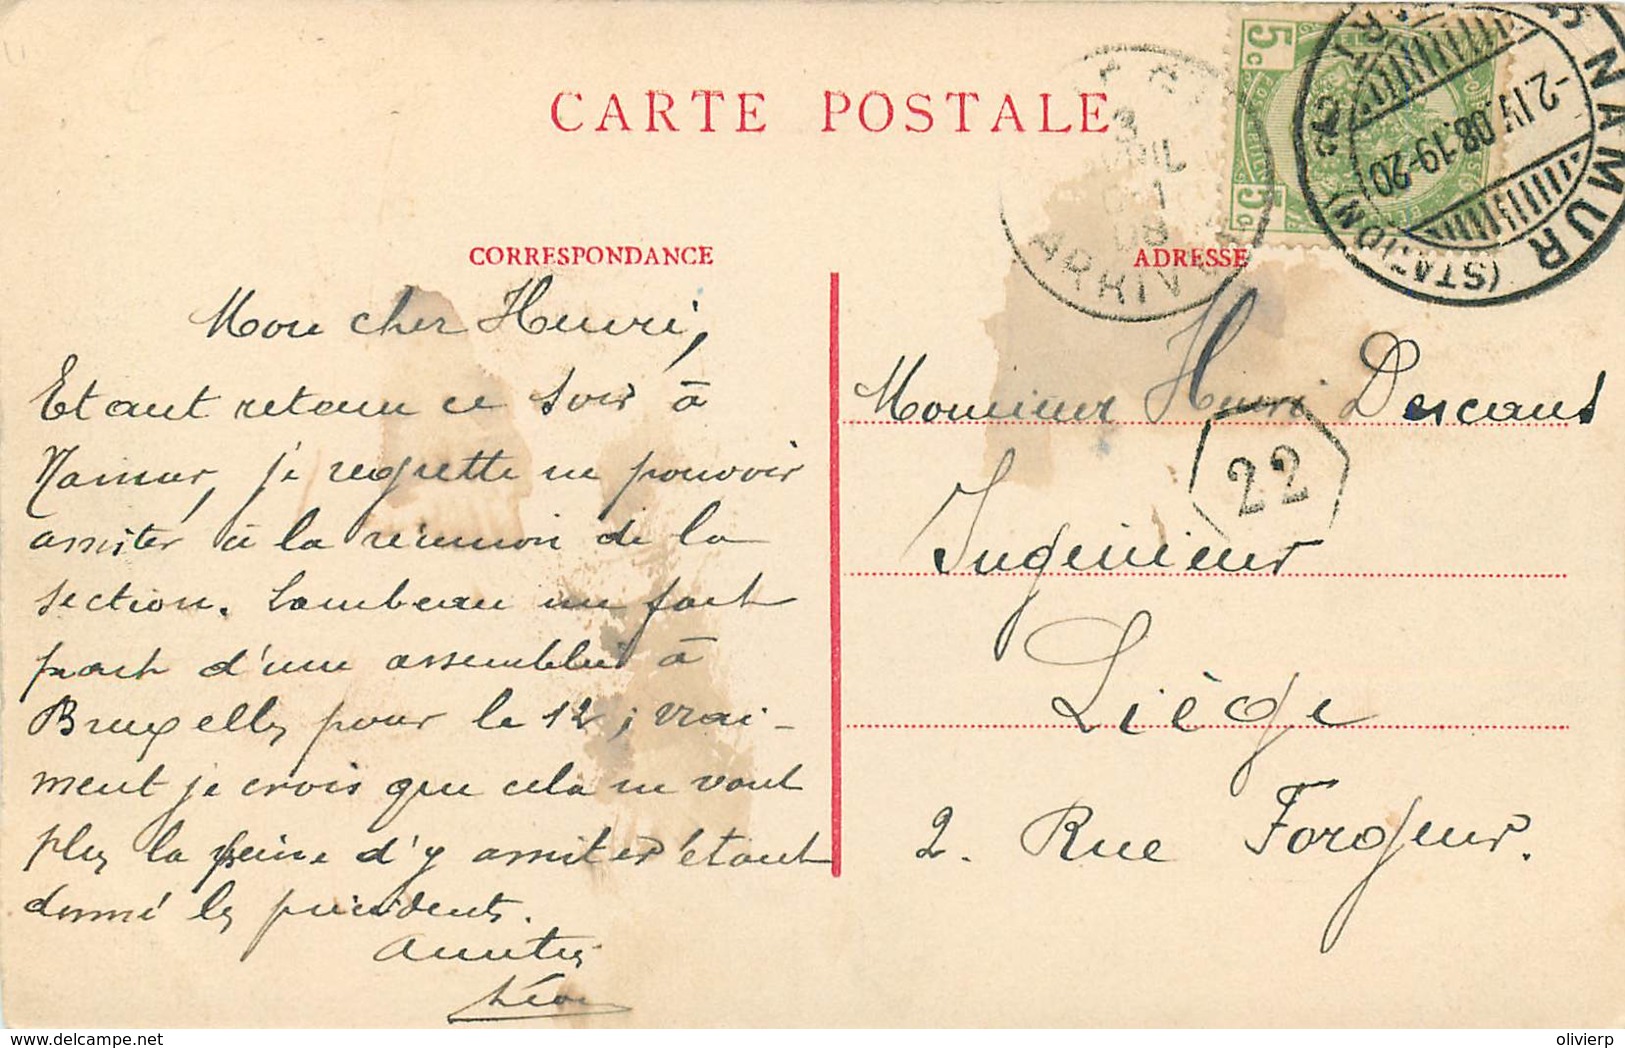 CARTE POSTALE
CORRESPONDANCE
ADRESSE
5c
5c
NAMUR
(STATION)
-2.IV.08.19-20
3
08
ARRIVÉE
22
Mon cher Henri,
Etant retenu ce soir à
Namur, je regrette ne pouvoir
assister à la réunion de la
section. Lambeau me fait
part d'une assemblée à
Bruxelles pour le 12; vrai-
ment je crois que cela ne vaut
plus la peine d'y assister étant
donné les précédents.
Amitiés
Léon
Monsieur Henri Descans
Ingénieur
Liège
2. Rue Forgeur.
delcampe.net
olivierp